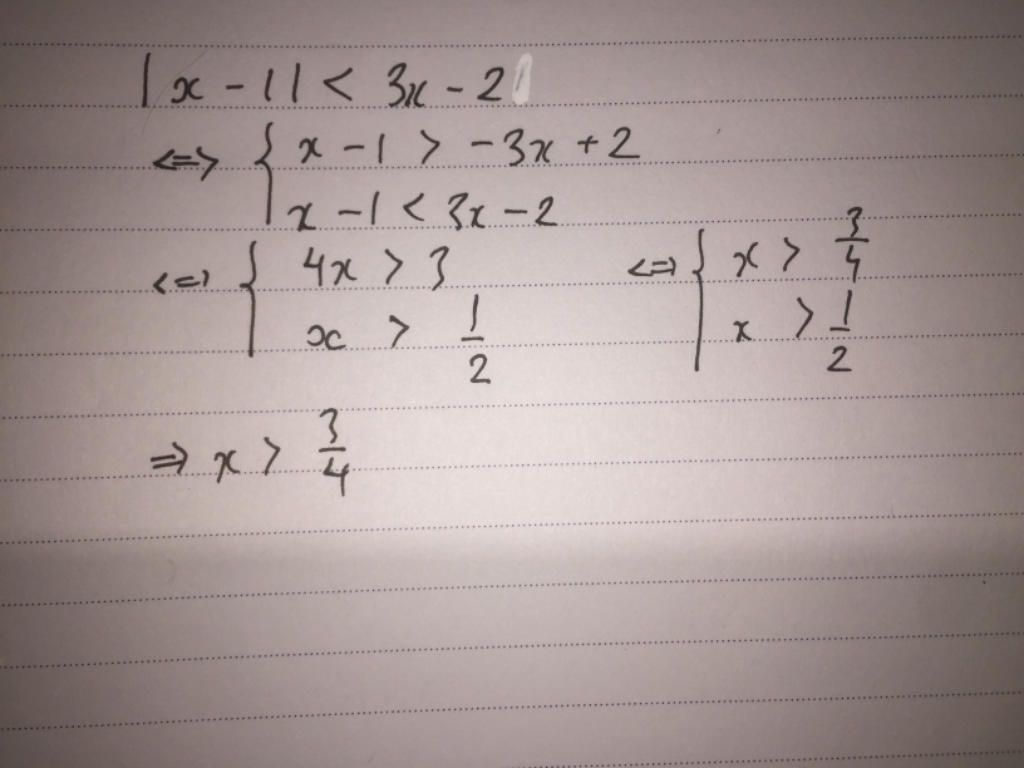 |x - 1| < 3x - 2
<=> { x - 1 > -3x + 2
x - 1 < 3x - 2
<=> { 4x > 3 <=> { x > 3/4
x > 1/2 x > 1/2
=> x > 3/4